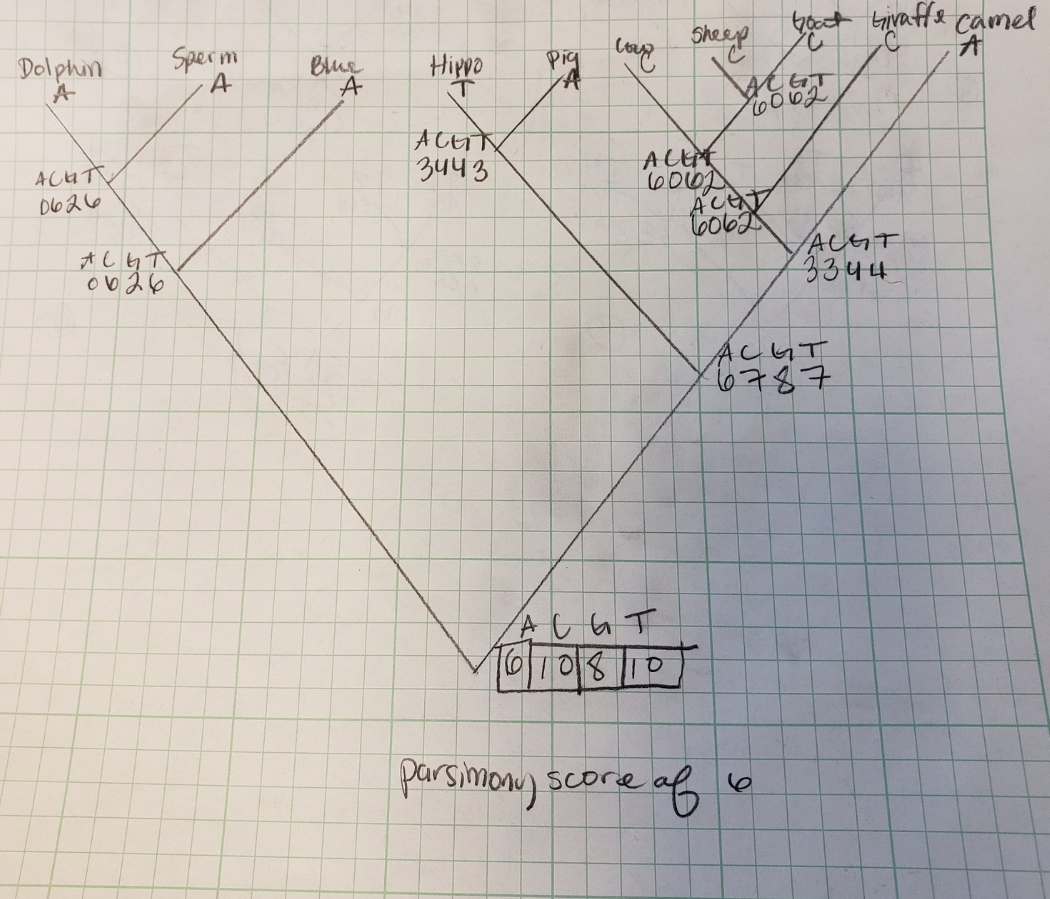 Dolphin Sperm Blue Hippo Pig Cow Sheep Goat Giraffe Camel
A A A T A C C C C A
A C G T
6062
A C G T
3443
A C G T
6062
A C G T
0626
A C G T
6062
A C G T
3344
A C G T
0626
A C G T
6787
A C G T
6 10 8 10
parsimony score of 6